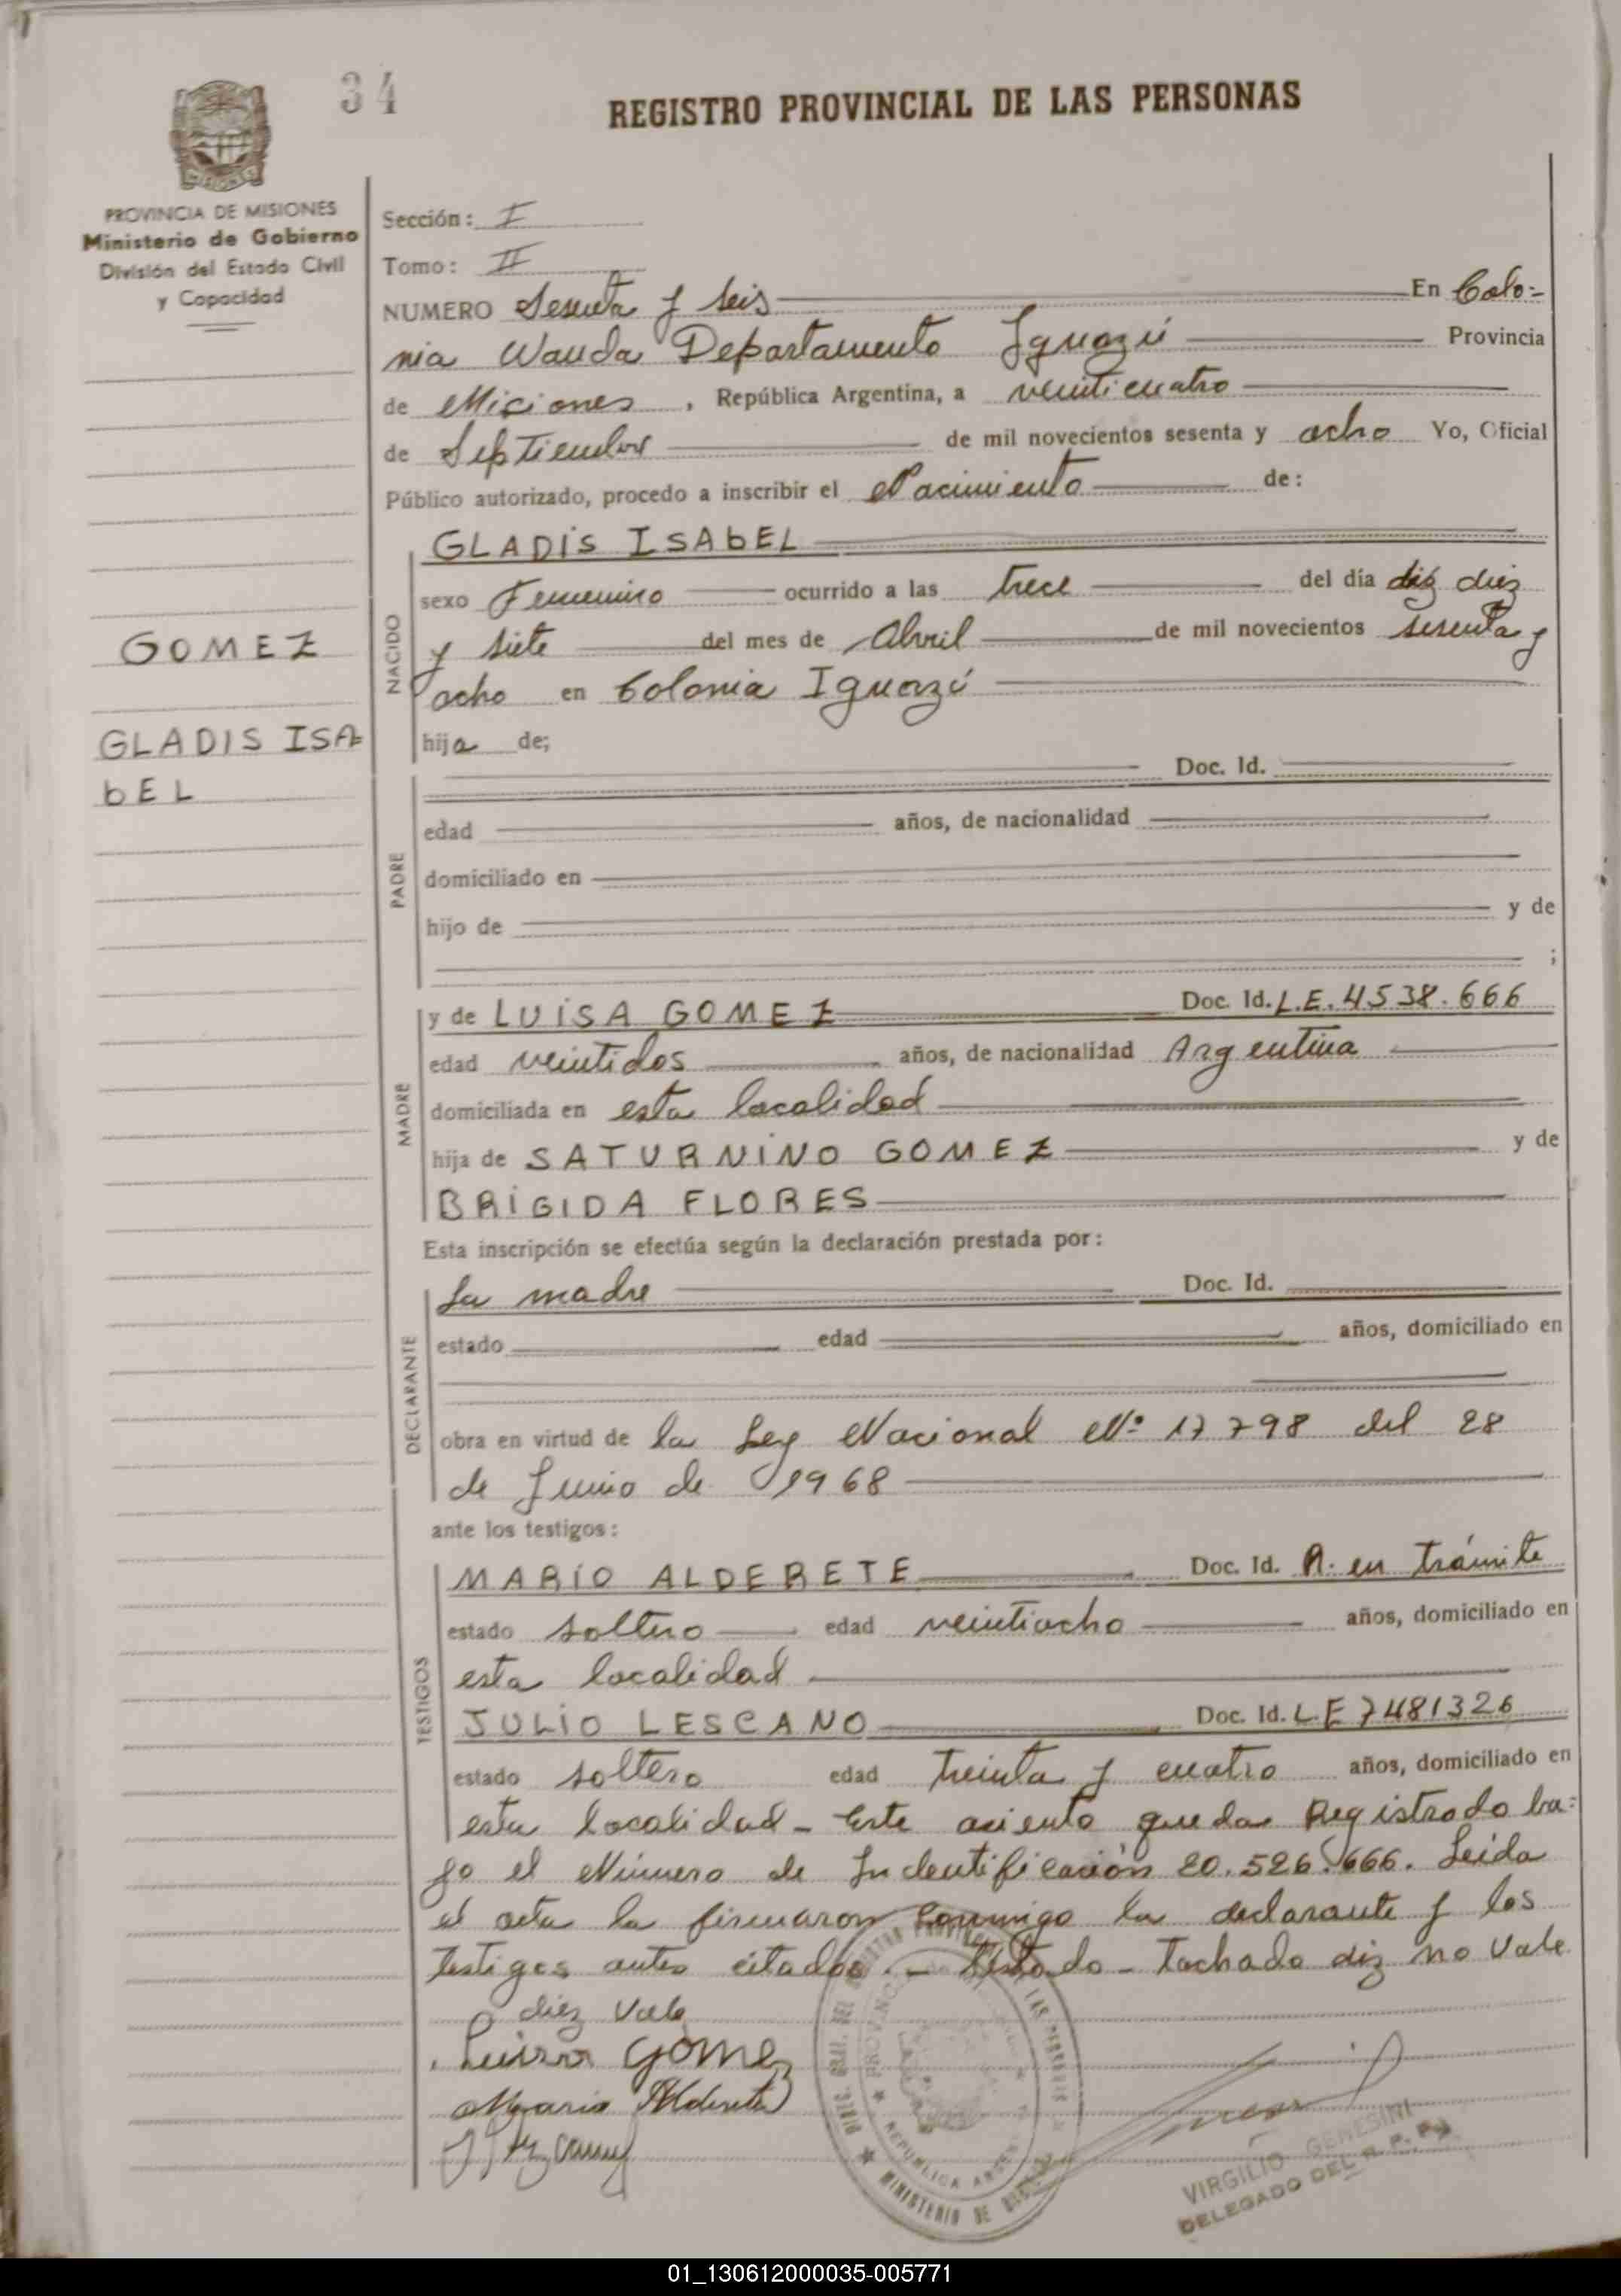 34
REGISTRO PROVINCIAL DE LAS PERSONAS
MISIONES
PROVINCIA DE MISIONES
Ministerio de Gobierno
División del Estado Civil
y Capacidad
Sección: I
Tomo: II
NUMERO Sesenta y seis En Colo=
nia Wanda Departamento Iguazú Provincia
de Misiones, República Argentina, a veinticuatro
de Septiembre de mil novecientos sesenta y ocho Yo, Oficial
Público autorizado, procedo a inscribir el Nacimiento de:
GOMEZ
GLADIS ISA=
bEL
NACIDO
GLADIS ISAbEL
sexo Femenino ocurrido a las trece del día diz diez
y siete del mes de Abril de mil novecientos sesenta y
ocho en Colonia Iguazú
hija de;
PADRE
Doc. Id.
edad años, de nacionalidad
domiciliado en
hijo de y de
;
MADRE
y de LUISA GOMEZ Doc. Id. L.E. 4538.666
edad veintidos años, de nacionalidad Argentina
domiciliada en esta localidad
hija de SATURNINO GOMEZ y de
BRIGIDA FLORES
Esta inscripción se efectúa según la declaración prestada por:
DECLARANTE
La madre Doc. Id.
estado edad años, domiciliado en
obra en virtud de la Ley Nacional Nº 17798 del 28
de Junio de 1968
ante los testigos:
TESTIGOS
MARIO ALDERETE Doc. Id. R. en Trámite
estado soltero edad veintiocho años, domiciliado en
esta localidad
JULIO LESCANO Doc. Id. L.E 7481326
estado soltero edad treinta y cuatro años, domiciliado en
esta localidad - Este asiento queda Registrado ba=
jo el Número de Indentificación 20.526.666. Leida
el acta la firmaron conmigo la declarante y los
Testigos antes citados. - Testado - Tachado diz no Vale
diez Vale
Luisa Gomez
Mario Alderete
VIRGILIO GENESINI
DELEGADO DEL R. P. P.
01_130612000035-005771